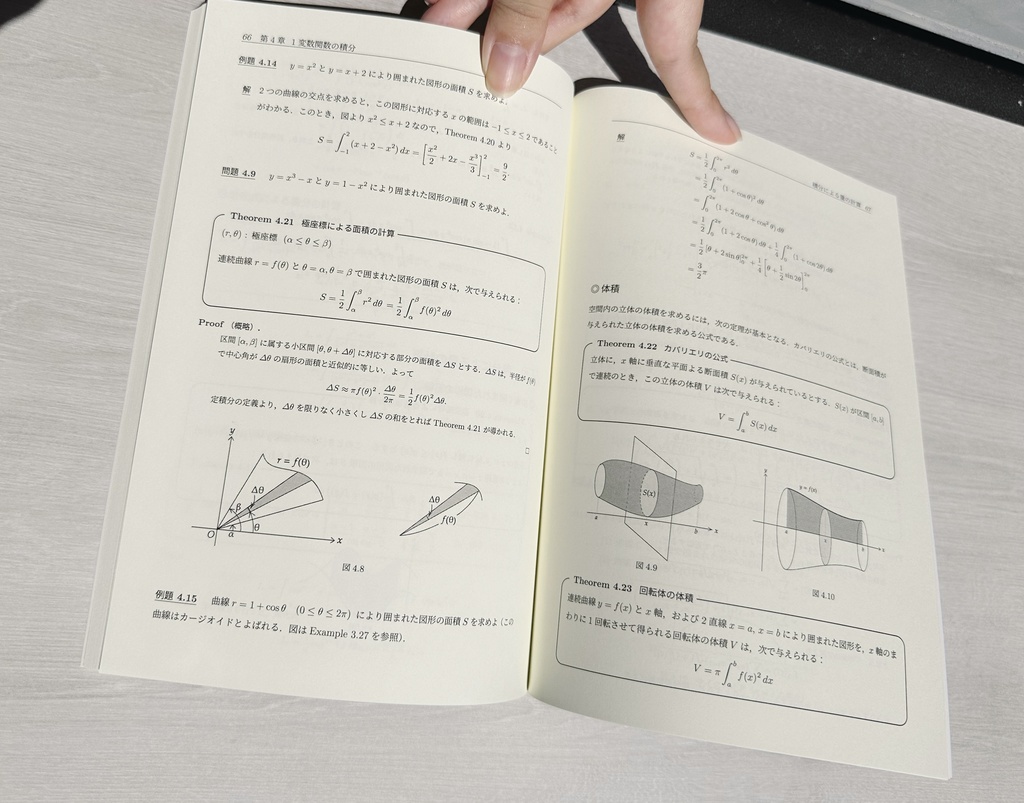 66 第4章 1変数関数の積分
例題 4.14 y = x² と y = x + 2 により囲まれた図形の面積 S を求めよ.
解 2つの曲線の交点を求めると,この図形に対応する x の範囲は −1 ≤ x ≤ 2 であること
がわかる.このとき,図より x² ≤ x + 2 なので,Theorem 4.20 より
S = ∫_{-1}^{2} (x + 2 − x²) dx = [x²/2 + 2x − x³/3]_{-1}^{2} = 9/2.
問題 4.9 y = x³ − x と y = 1 − x² により囲まれた図形の面積 S を求めよ.
Theorem 4.21 極座標による面積の計算
(r, θ) : 極座標 (α ≤ θ ≤ β)
連続曲線 r = f(θ) と θ = α, θ = β で囲まれた図形の面積 S は,次で与えられる :
S = 1/2 ∫_α^β r² dθ = 1/2 ∫_α^β f(θ)² dθ
Proof (概略).
区間 [α, β] に属する小区間 [θ, θ + Δθ] に対応する部分の面積を ΔS とする.ΔS は,半径が f(θ)
で中心角が Δθ の扇形の面積と近似的に等しい.よって
ΔS ≈ πf(θ)² · Δθ/2π = 1/2 f(θ)²Δθ.
定積分の定義より,Δθ を限りなく小さくし ΔS の和をとれば Theorem 4.21 が導かれる.
□
y
r = f(θ)
Δθ
β
θ
α
O
x
Δθ
f(θ)
図 4.8
例題 4.15 曲線 r = 1 + cos θ (0 ≤ θ ≤ 2π) により囲まれた図形の面積 S を求めよ (この
曲線はカージオイドとよばれる.図は Example 3.27 を参照).
積分による量の計算 67
解
S = 1/2 ∫_0^{2π} r² dθ
= 1/2 ∫_0^{2π} (1 + cos θ)² dθ
= ∫_0^{2π} (1 + 2 cos θ + cos² θ) dθ
= 1/2 ∫_0^{2π} (1 + 2 cos θ) dθ + 1/4 ∫_0^{2π} (1 + cos 2θ) dθ
= 1/2 [θ + 2 sin θ]_0^{2π} + 1/4 [θ + 1/2 sin 2θ]_0^{2π}
= 3/2 π
◎ 体積
空間内の立体の体積を求めるには,次の定理が基本となる.カバリエリの公式とは,断面積が
与えられた立体の体積を求める公式である.
Theorem 4.22 カバリエリの公式
立体に,x 軸に垂直な平面よる断面積 S(x) が与えられているとする.S(x) が区間 [a, b]
で連続のとき,この立体の体積 V は次で与えられる :
V = ∫_a^b S(x) dx
S(x)
a
x
b
x
図 4.9
y
y = f(x)
a
x
b
x
図 4.10
Theorem 4.23 回転体の体積
連続曲線 y = f(x) と x 軸,および 2 直線 x = a, x = b により囲まれた図形を,x 軸のま
わりに 1 回転させて得られる回転体の体積 V は,次で与えられる :
V = π ∫_a^b f(x)² dx